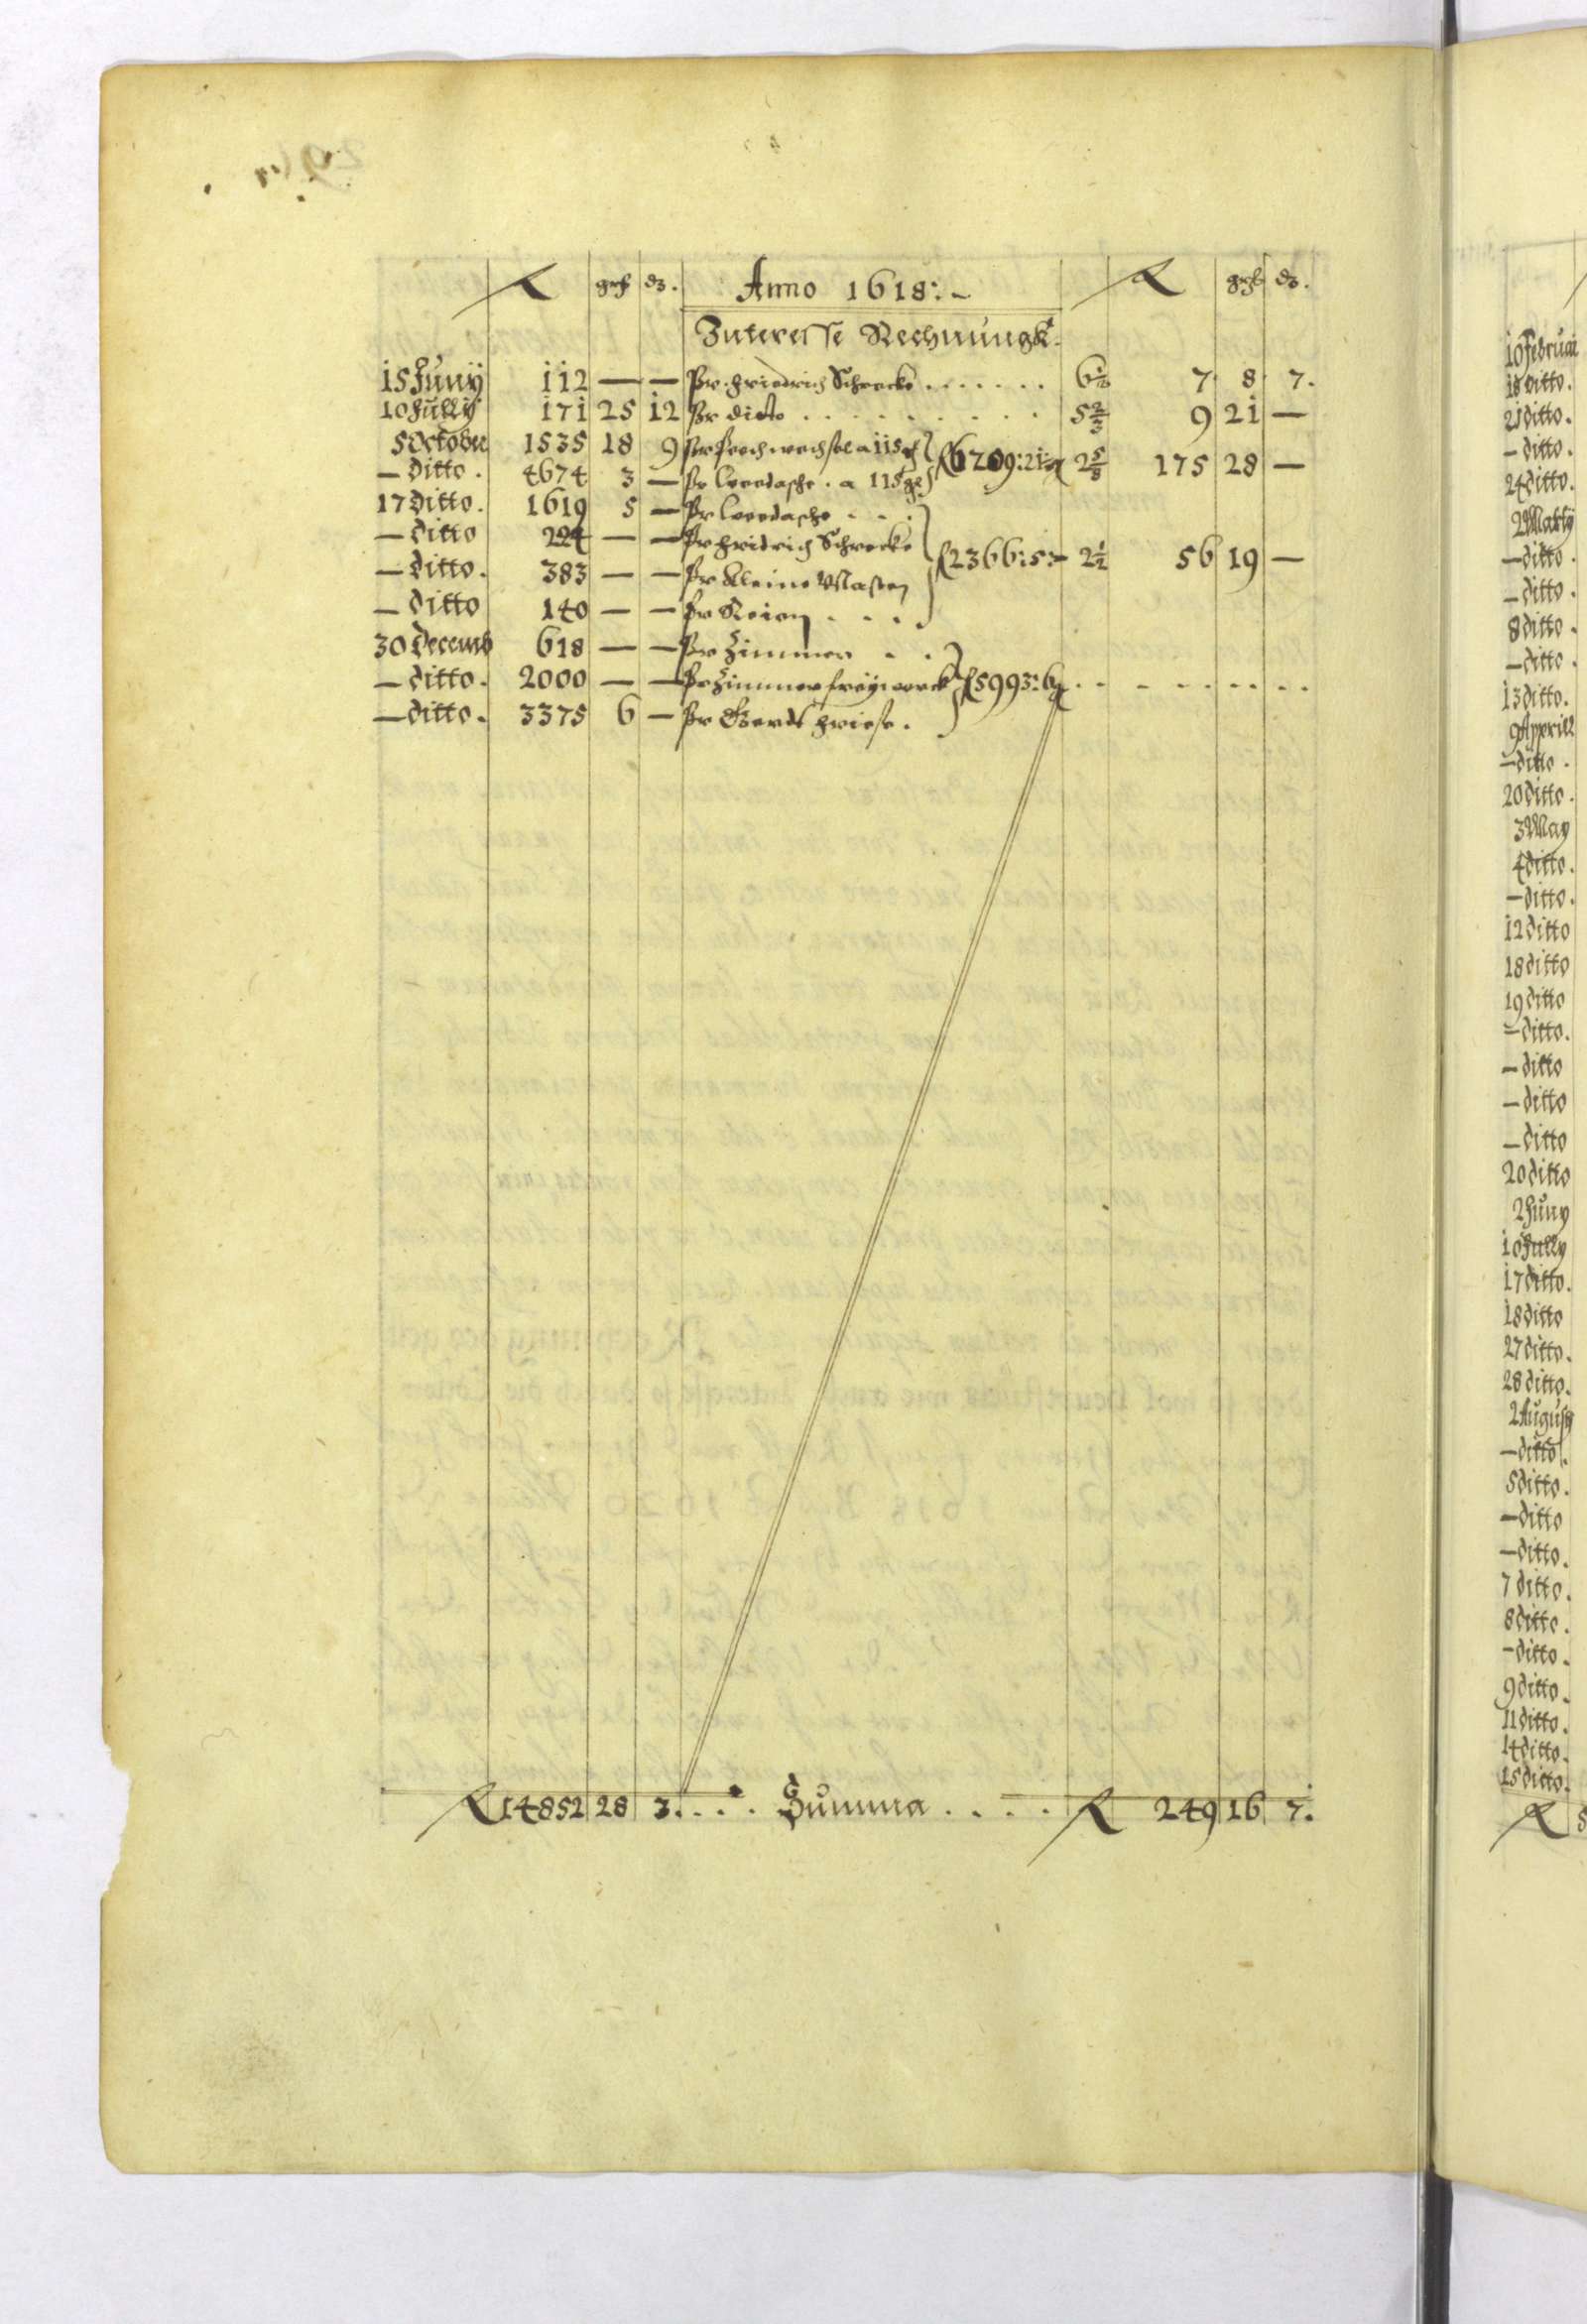 R gß dz. Anno 1618:- R gß dz.
Interesse Rechnungk.
15 Juny 112 — — Pr. Friedrich Schrecke . . . . . . 6½ 7 8 7.
10 Jully 171 25 12 Pr ditto . . . . . . . . . 5⅔ 9 21 —
5 October 1535 18 9 Pr wechsel a 115 g
— ditto. 4674 3 — Pr Weedasche. a 115 g } R 6209:21:- 2⅝ 175 28 —
17 ditto. 1619 5 — Pr Weedasche . . .
— ditto 224 — — Pr Fridrich Schrecke
— ditto. 383 — — Pr Kleine Masten } R 2366:5:- 2½ 56 19 —
— ditto 140 — — Pr Reien . . . .
30 Decemb 618 — — Pr Zimmer . .
— ditto. 2000 — — Pr Zimmer freywerck } R 5993:6 . . . . . . . .
— ditto. 3375 6 — Pr Gerdt Friese.
R 14852 28 3. . . . Summa . . . . R 249 16 7.
10 Februar
18 ditto.
21 ditto.
— ditto.
24 ditto.
2 Marty
— ditto.
— ditto.
8 ditto.
— ditto.
13 ditto.
9 Apprill
— ditto.
20 ditto.
3 May
4 ditto.
— ditto.
12 ditto
18 ditto
19 ditto
— ditto.
— ditto
— ditto
— ditto
20 ditto
2 Juny
10 Jully
17 ditto.
18 ditto
27 ditto.
28 ditto.
2 Augusty
— ditto.
5 ditto.
— ditto
— ditto.
7 ditto.
8 ditto.
— ditto.
9 ditto.
11 ditto.
14 ditto.
15 ditto.
R 5